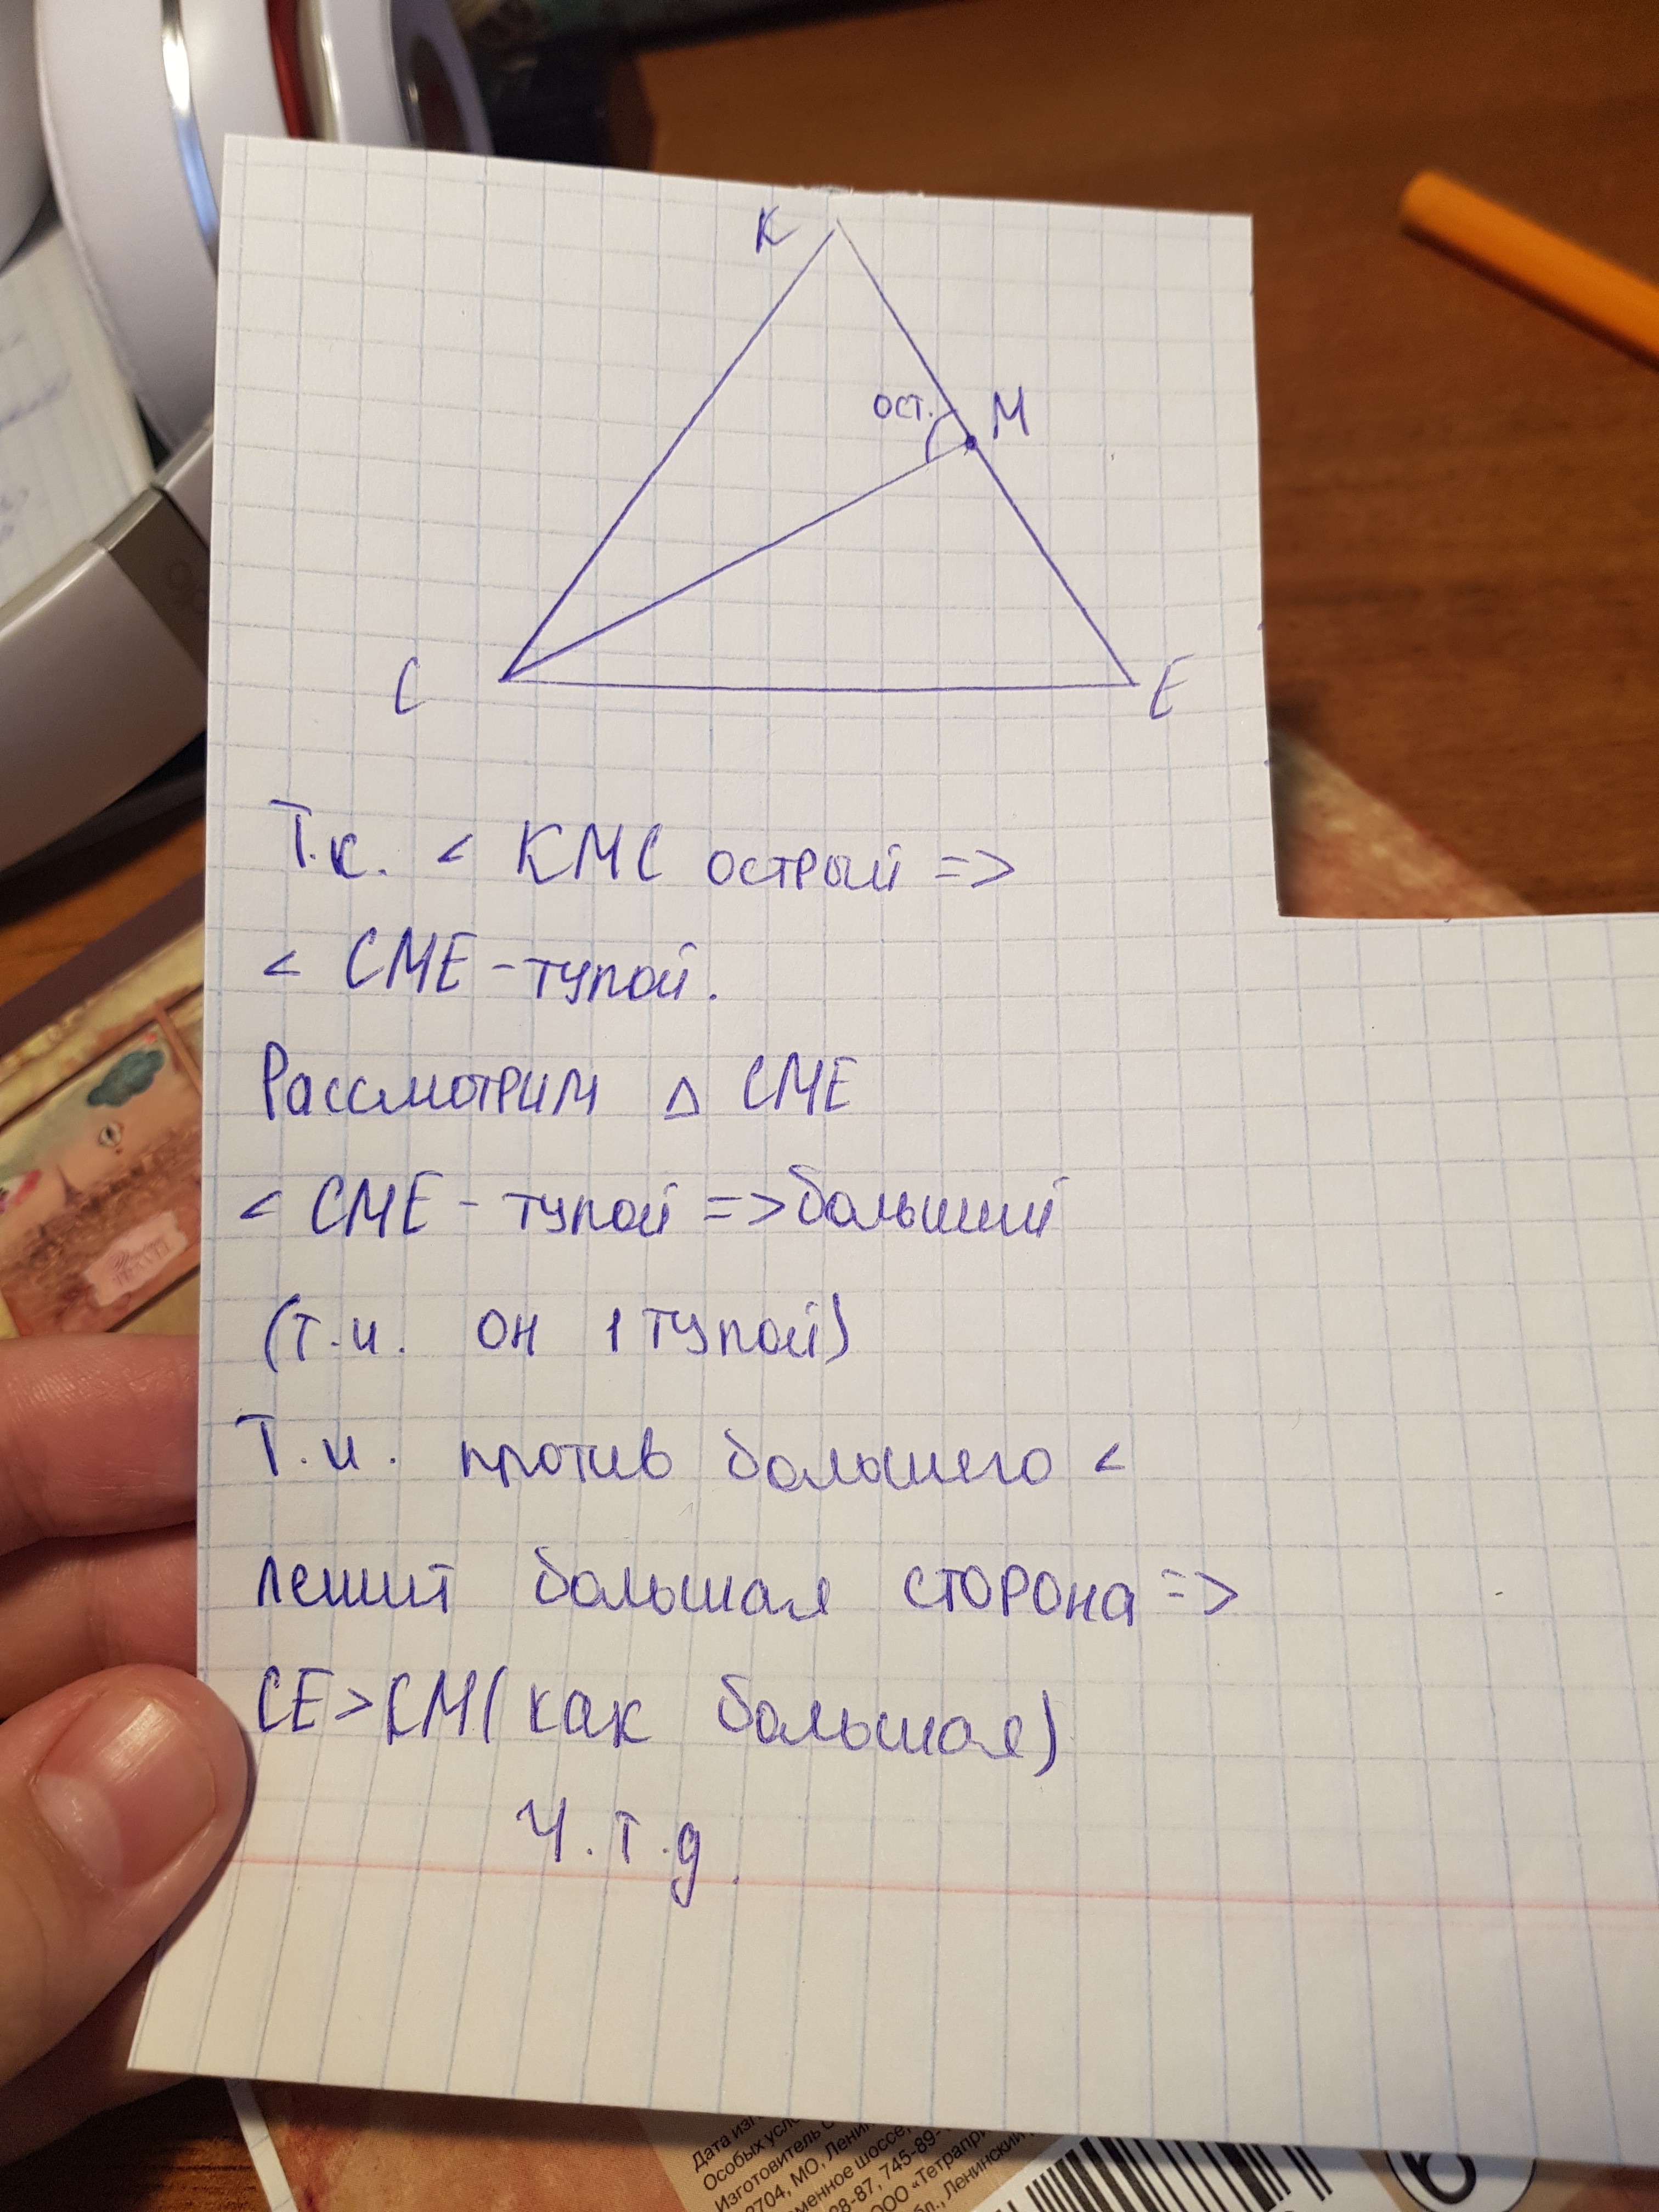 К
ост.
М
С
Е
Т.к. < КМС острый =>
< СМЕ - тупой.
Рассмотрим △ СМЕ
< СМЕ - тупой => больший
(т.к. он 1 тупой)
Т.к. против большего <
лежит большая сторона =>
СЕ > СМ (как большая)
Ч.т.д.
Дата изг
Особых усл
Изготовитель
2704, МО, Ленин
менное шоссе,
28-87, 745-89-
ООО «Тетрапр
бл., Ленинский